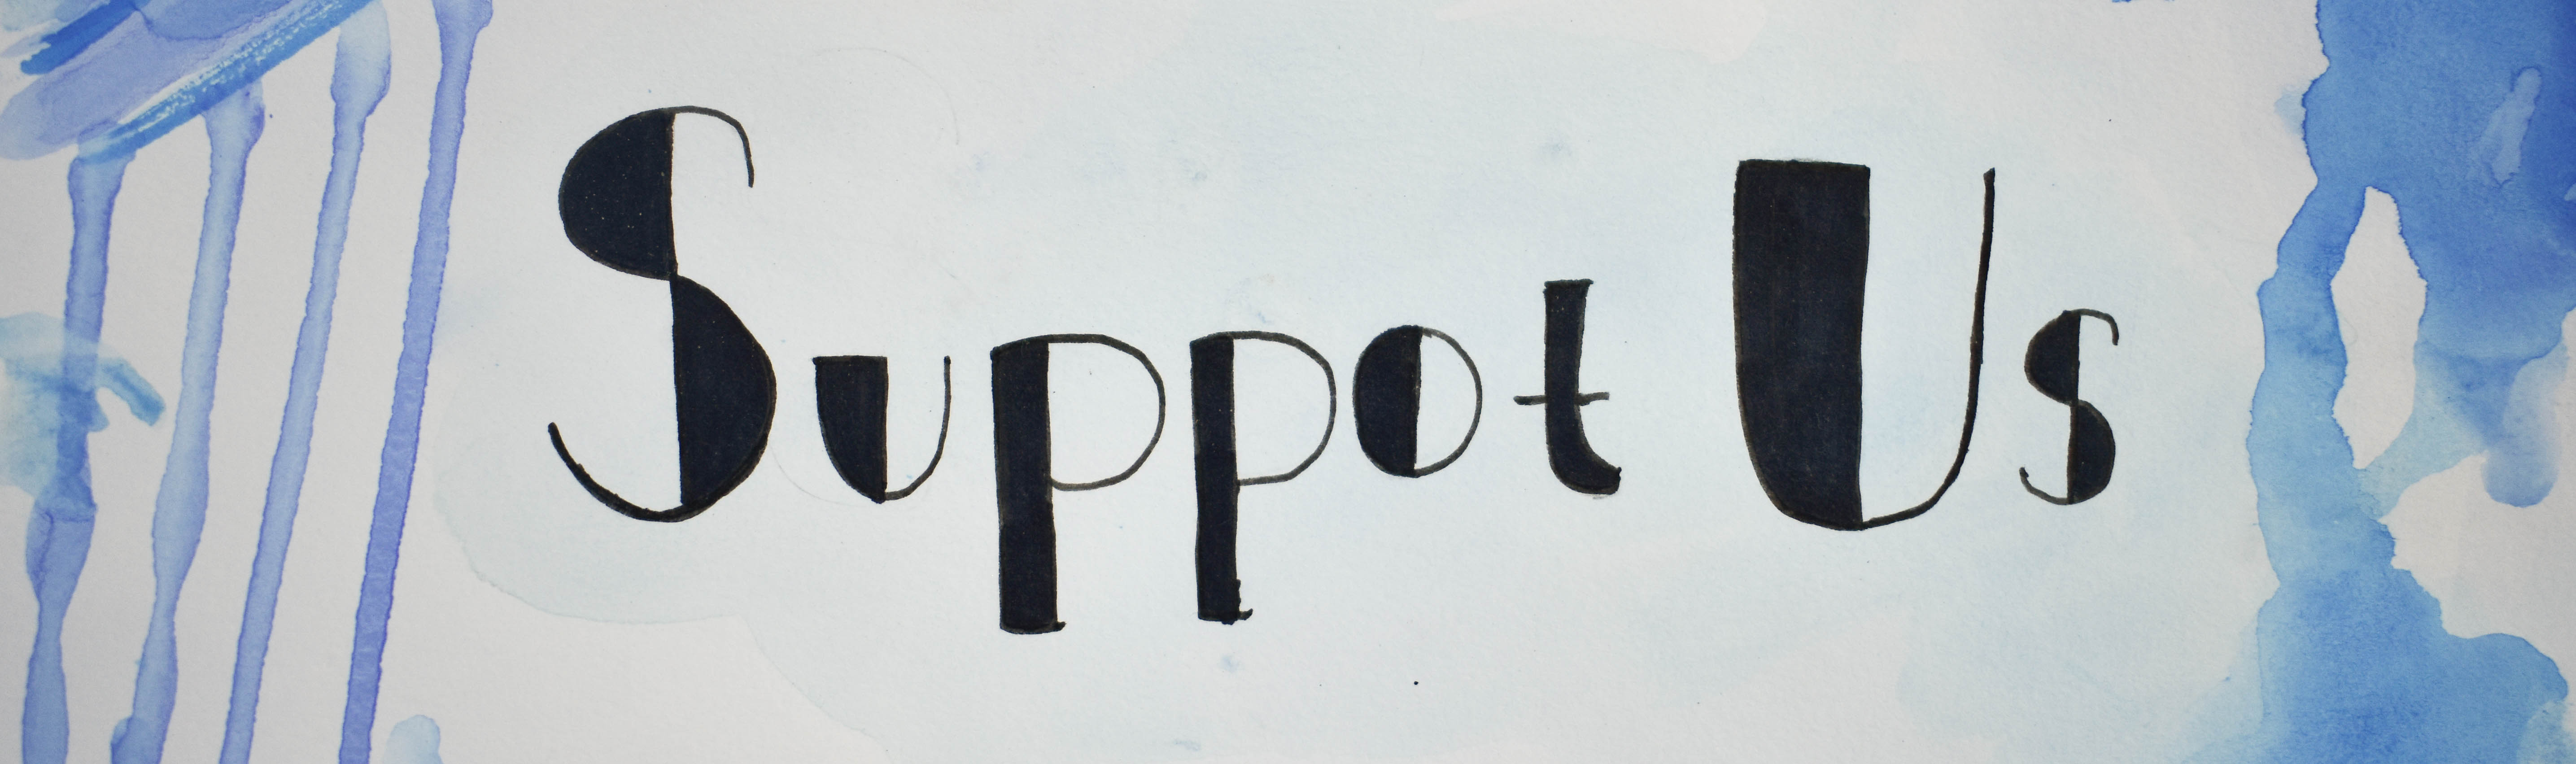 Suppot Us